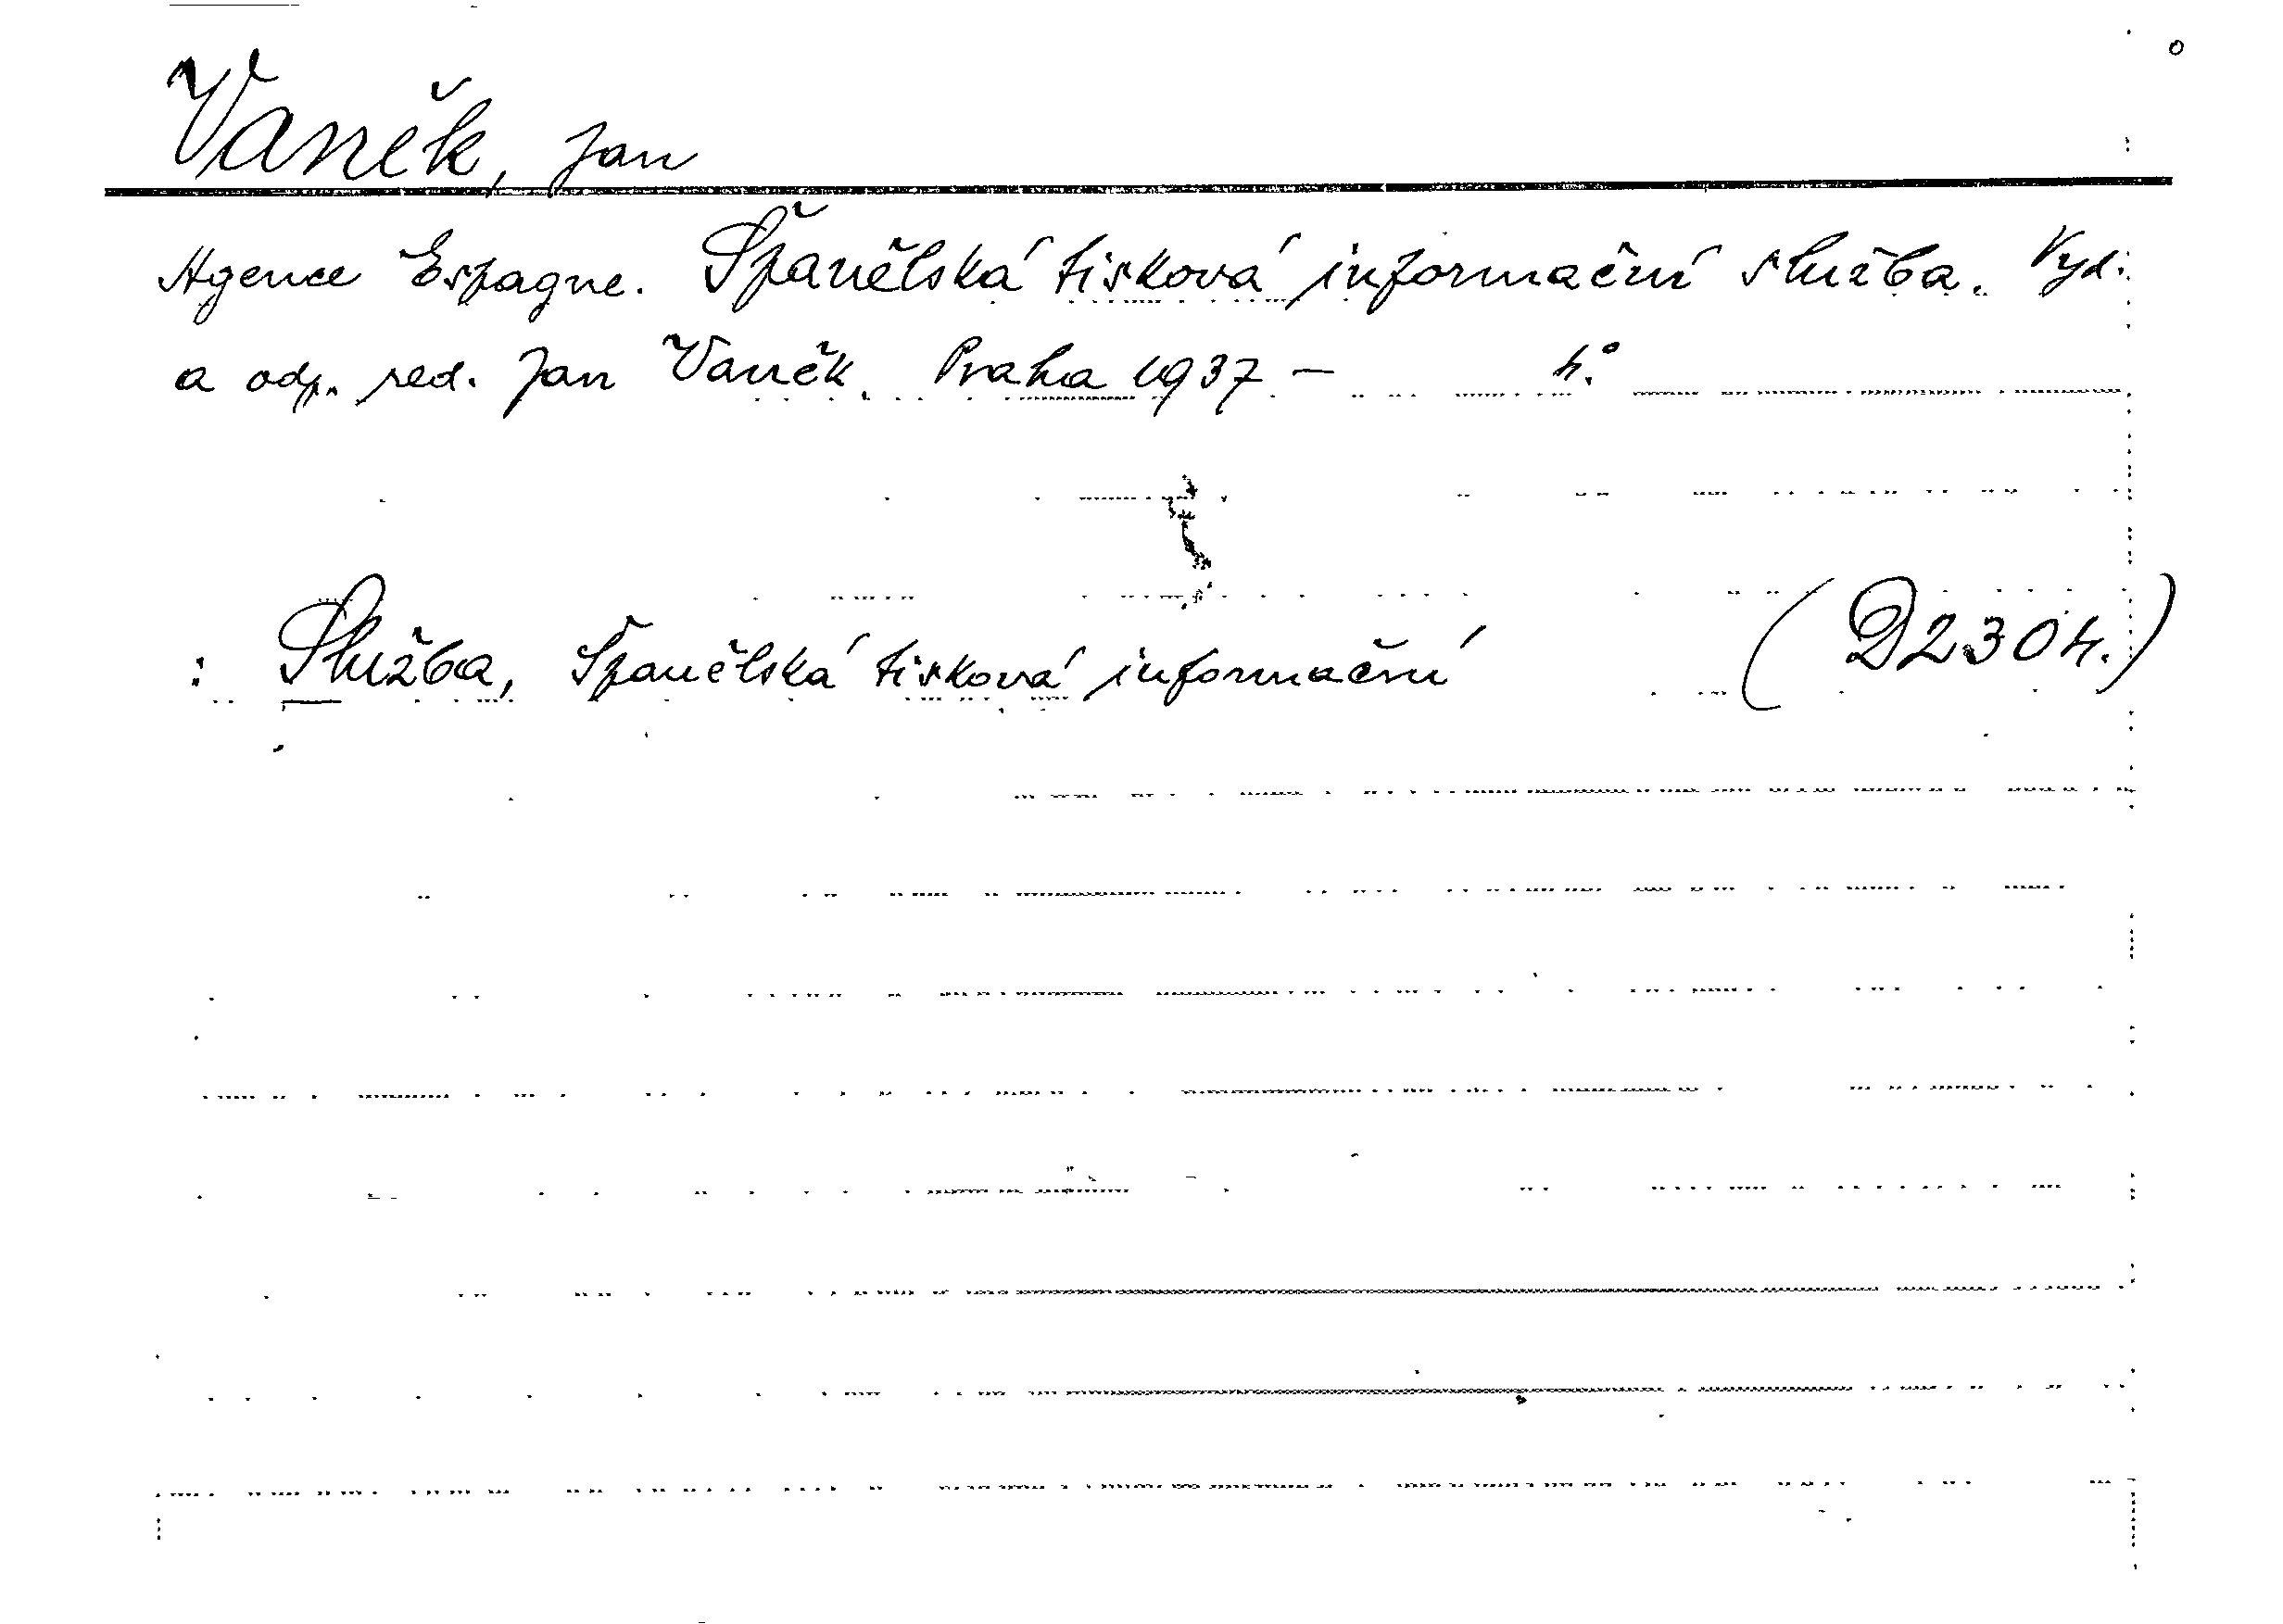 Vaněk, Jan
Agence Espagne. Španělská tisková informační služba. Vyd.
a odp. red. Jan Vaněk. Praha 1937 – 4.°
: Služba, Španělská tisková informační (D2304.)